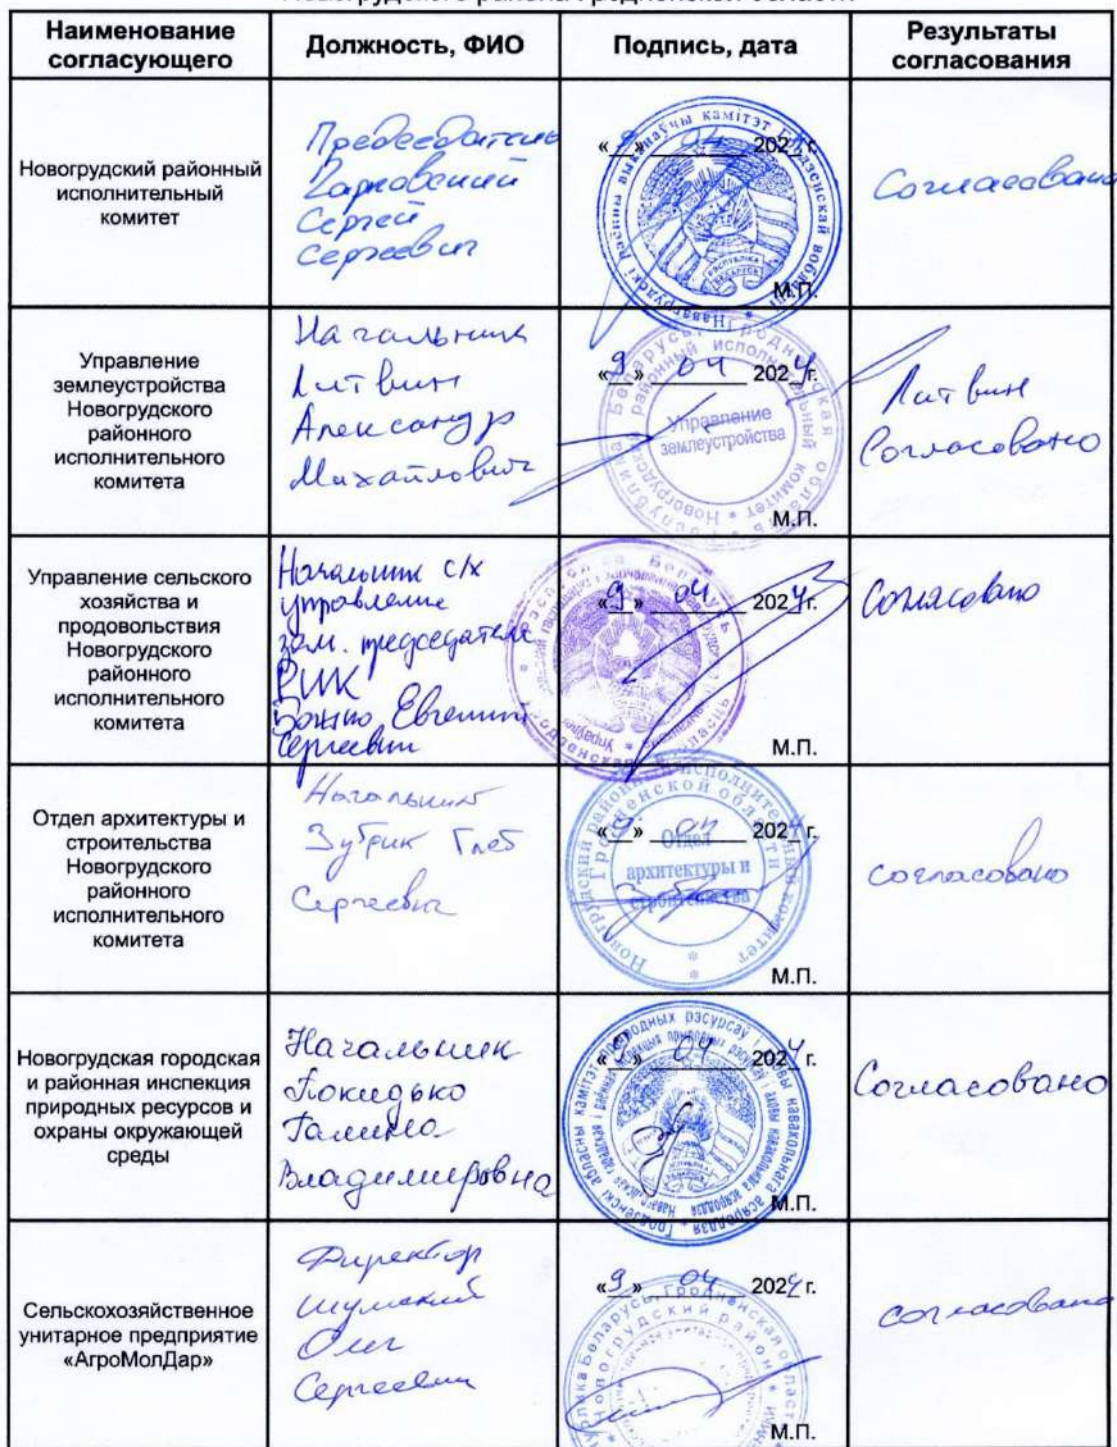 Новогрудского района Гродненской области
Наименование согласующего
Должность, ФИО
Подпись, дата
Результаты согласования
Новогрудский районный
исполнительный
комитет
Председатель
Сергей
Сергеевич
«9» 04 2024 г.
М.П.
Согласовано
Управление
землеустройства
Новогрудского
районного
исполнительного
комитета
Начальник
Литвин
Александр
Михайлович
«9» 04 2024 г.
Управление
землеустройства
М.П.
Литвин
Согласовано
Управление сельского
хозяйства и
продовольствия
Новогрудского
районного
исполнительного
комитета
Начальник с/х
управление
зам. председателя
РИК
Божко Евгений
Сергеевич
«9» 04 2024 г.
М.П.
Согласовано
Отдел архитектуры и
строительства
Новогрудского
районного
исполнительного
комитета
Начальник
Зубрик Глеб
Сергеевич
«9» 04 2024 г.
Отдел
архитектуры и
строительства
М.П.
согласовано
Новогрудская городская
и районная инспекция
природных ресурсов и
охраны окружающей
среды
Начальник
Покидько
Галина
Владимировна
«9» 04 2024 г.
М.П.
Согласовано
Сельскохозяйственное
унитарное предприятие
«АгроМолДар»
Директор
Шумский
Олег
Сергеевич
«9» 04 2024 г.
М.П.
согласовано